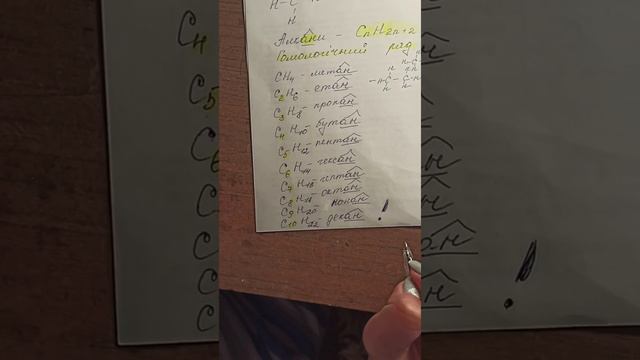 H-C
H
Алкани - CnH2n+2
Гомологічний ряд
CH4 - метан
C2H6 - етан
C3H8 - пропан
C4H10 - бутан
C5H12 - пентан
C6H14 - гексан
C7H16 - гептан
C8H18 - октан
C9H20 - нонан
C10H22 - декан !